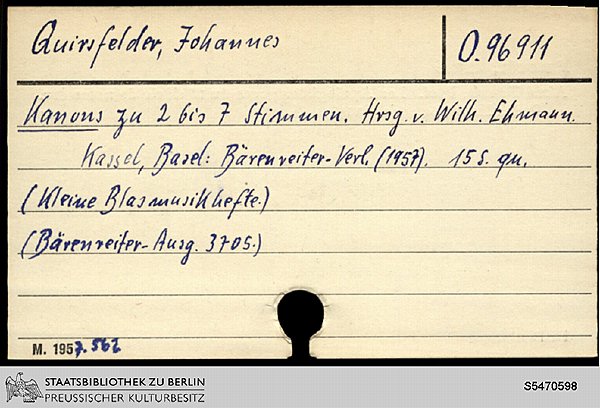 Quirsfelder, Johannes
O.96911
Kanons zu 2 bis 7 Stimmen. Hrsg. v. Wilh. Ehmann.
Kassel, Basel: Bärenreiter-Verl. (1957). 15 S. qu.
(Kleine Blasmusikhefte.)
(Bärenreiter-Ausg. 3705.)
M. 1957.562
STAATSBIBLIOTHEK ZU BERLIN
PREUSSISCHER KULTURBESITZ
S5470598